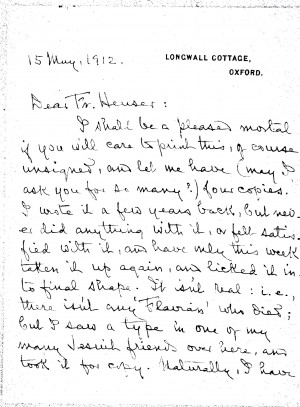 LONGWALL COTTAGE,
OXFORD.
15 May, 1912.
Dear Fr. Heuser:
I shall be a pleased mortal
if you will care to print this, of course
unsigned, and let me have (may I
ask you for so many?) four copies.
I wrote it a few years back, but nev-
er did anything with it, or felt satis-
fied with it, and have only this week
taken it up again, and licked it in-
to final shape. It isn't real: i.e.,
there isn't any 'Flavian' who died;
but I saw a type in one of my
many Jesuit friends over here, and
took it for copy. Naturally, I have